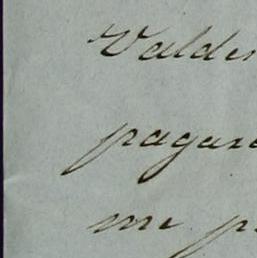 Valde
pagar
me p